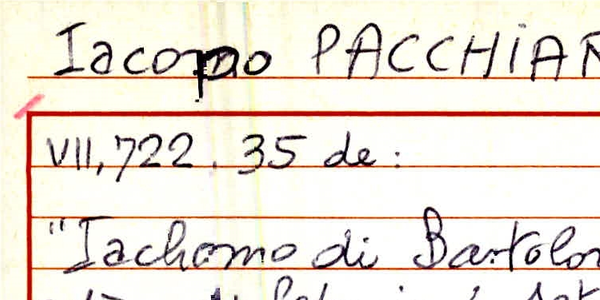 Iacopo PACCHIAR
VII, 722. 35 de:
"Iachomo di Bartolom